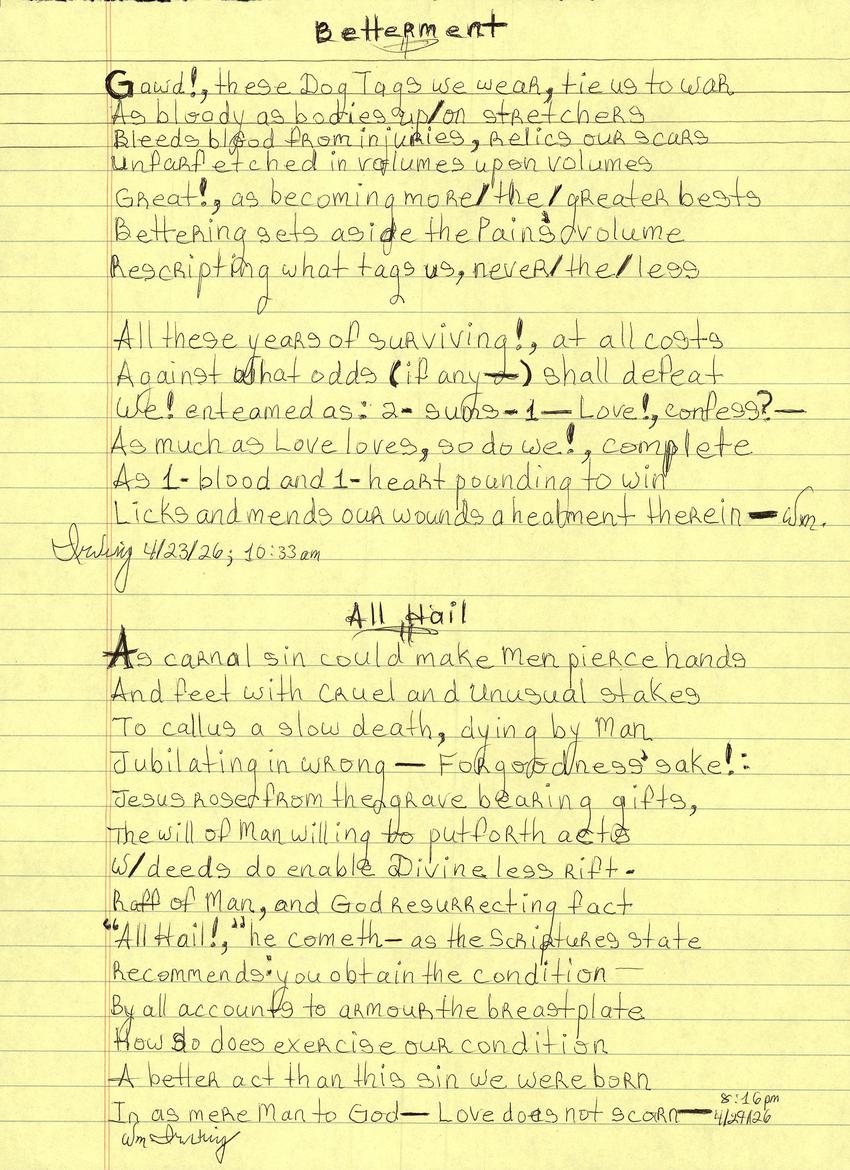 Betterment
Gawd!, these Dog Tags we wear, tie us to war
As bloody as bodies up/on stretchers
Bleeds blood from injuries, relics our scars
Unfarfetched in volumes upon volumes
Great!, as becoming more/the/greater bests
Bettering sets aside the Pain's volume
Rescripting what tags us, never/the/less
All these years of surviving!, at all costs
Against what odds (if any) shall defeat
We! enteamed as: 2- sums-1—Love!, confess?—
As much as Love loves, so do we!, complete
As 1-blood and 1-heart pounding to win
Licks and mends our wounds a healment therein — Wm.
Irving 4/23/26; 10:33am
All Hail
As carnal sin could make Men pierce hands
And feet with Cruel and Unusual stakes
To callus a slow death, dying by Man
Jubilating in wrong — For goodness' sake!:
Jesus rose from the grave bearing gifts,
The will of Man willing to put forth acts
W/deeds do enable Divine less Rift-
Raff of Man, and God resurrecting fact
"All Hail!," he cometh— as the Scriptures state
Recommends: you obtain the condition —
By all accounts to armour the breastplate
How so does exercise our condition
A better act than this sin we were born
In as mere Man to God— Love does not scorn— 8:16pm
4/29/26
Wm Irving